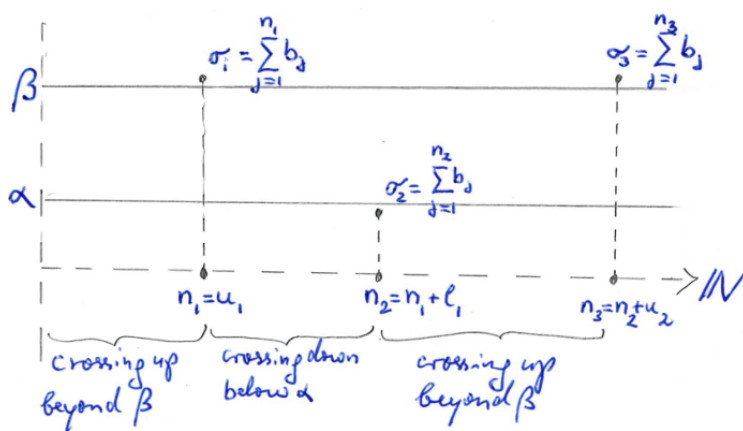 σ₁ = ∑_{j=1}^{n₁} b_j
σ₃ = ∑_{j=1}^{n₃} b_j
β
σ₂ = ∑_{j=1}^{n₂} b_j
α
ℕ
n₁=u₁
n₂=n₁+ℓ₁
n₃=n₂+u₂
crossing up
beyond β
crossing down
below α
crossing up
beyond β